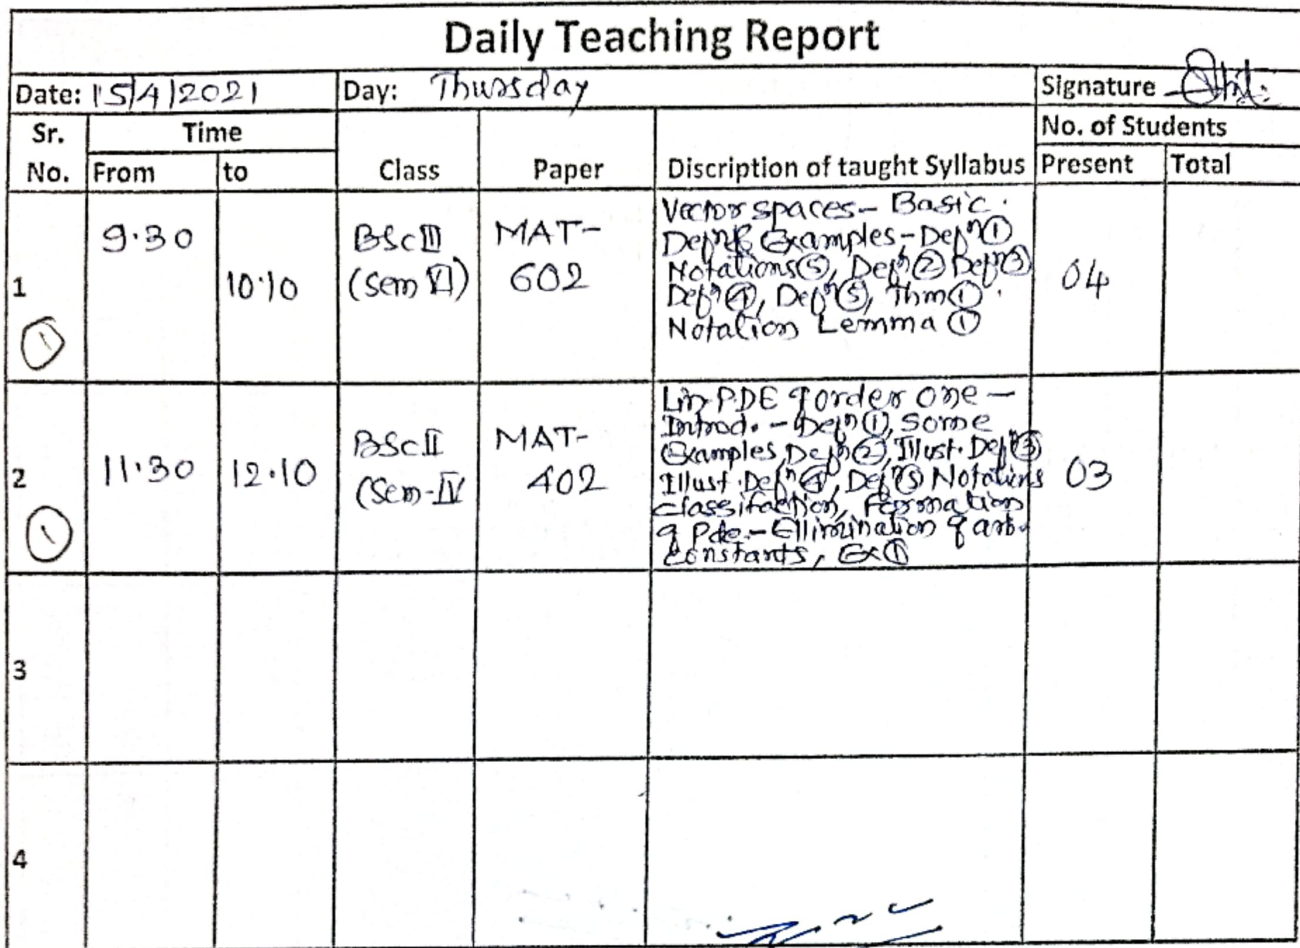 Daily Teaching Report
Date: 15/4/2021 Day: Thursday Signature
Sr. No. Time No. of Students
From to Class Paper Discription of taught Syllabus Present Total
1 9.30 10.10 BSc III (Sem VI) MAT-602 04
Vector spaces - Basic
Defn & Examples - Defn ①
Notations ⑤, Defn ② Defn ③
Defn ④, Defn ⑤, Thm ①
Notation Lemma ①
①
2 11.30 12.10 BSc II (Sem-IV MAT-402 03
Lin PDE of order one -
Introd. - Defn ①, some
Examples, Defn ②, Illust. Defn ③
Illust. Defn ④, Defn ⑤ Notations
classifaction, Formation
of Pde. - Ellimination of arb.
constants, Ex ①
①
3
4